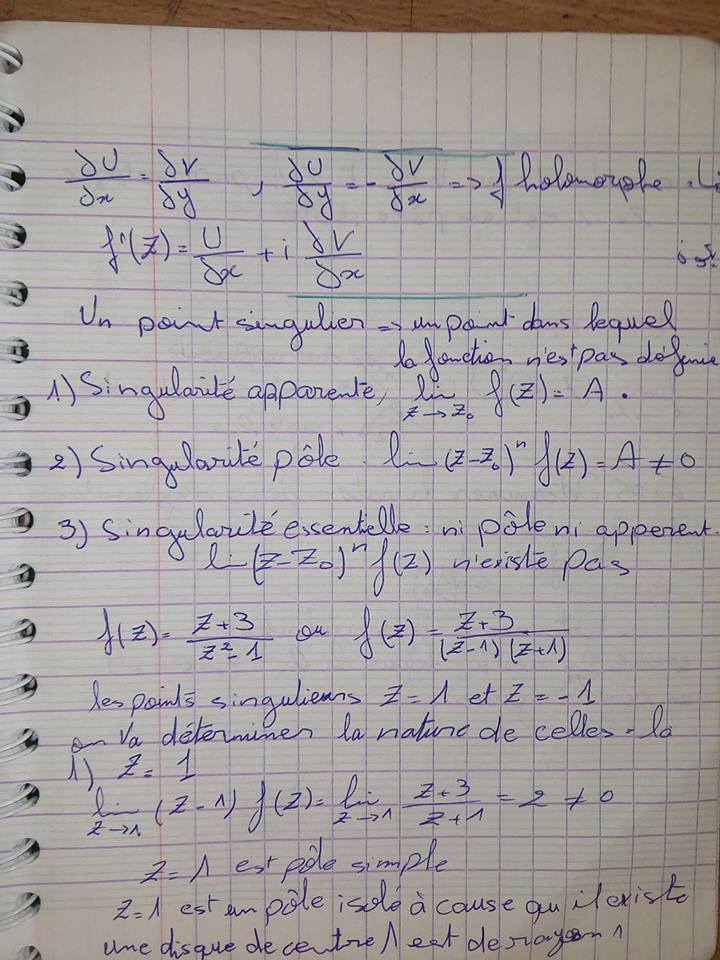 ∂U/∂x = ∂V/∂y , ∂U/∂y = - ∂V/∂x => f holomorphe.
f'(Z) = U/∂x + i ∂V/∂x
Un point singulier => un point dans lequel
la fonction n'est pas définie
1) Singularité apparente, lim Z→Z₀ f(Z) = A .
2) Singularité pôle . lim (Z-Z₀)ⁿ f(Z) = A ≠ 0
3) Singularité essentielle : ni pôle ni apperent.
lim (Z-Z₀)ⁿ f(Z) n'existe pas
f(Z) = Z+3 / Z²-1 ou f(Z) = Z+3 / (Z-1)(Z+1)
les points singuliers Z=1 et Z=-1
on va déterminer la nature de celles-la
1) Z=1
lim Z→1 (Z-1) f(Z) = lim Z→1 Z+3 / Z+1 = 2 ≠ 0
Z=1 est pôle simple
Z=1 est un pôle isolé à cause qu'il existe
une disque de centre 1 est de rayon 1